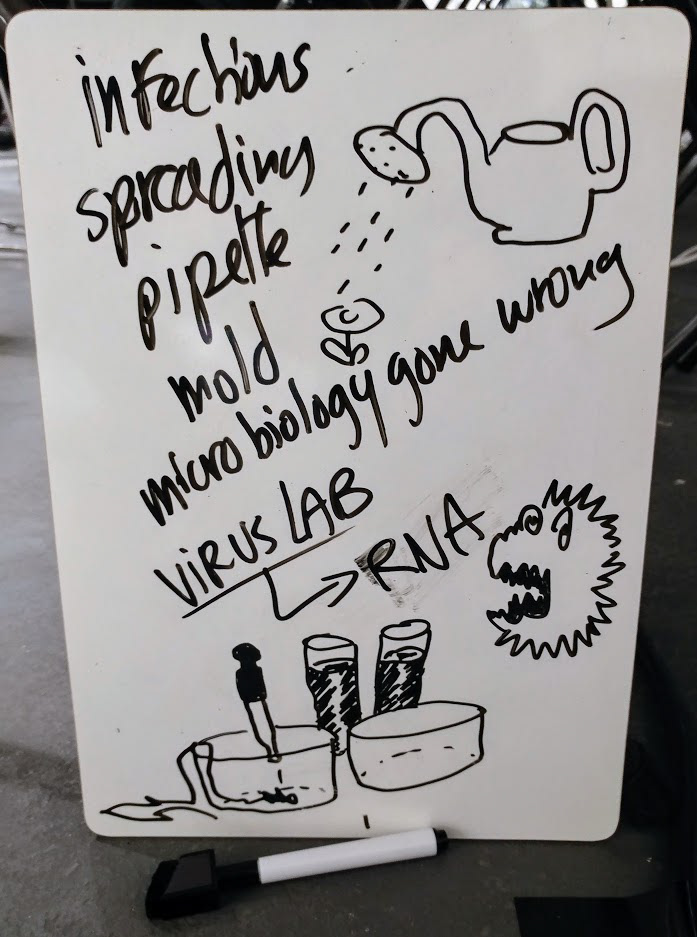 infectious
spreading
pipette
mold
microbiology gone wrong
VIRUS LAB
RNA